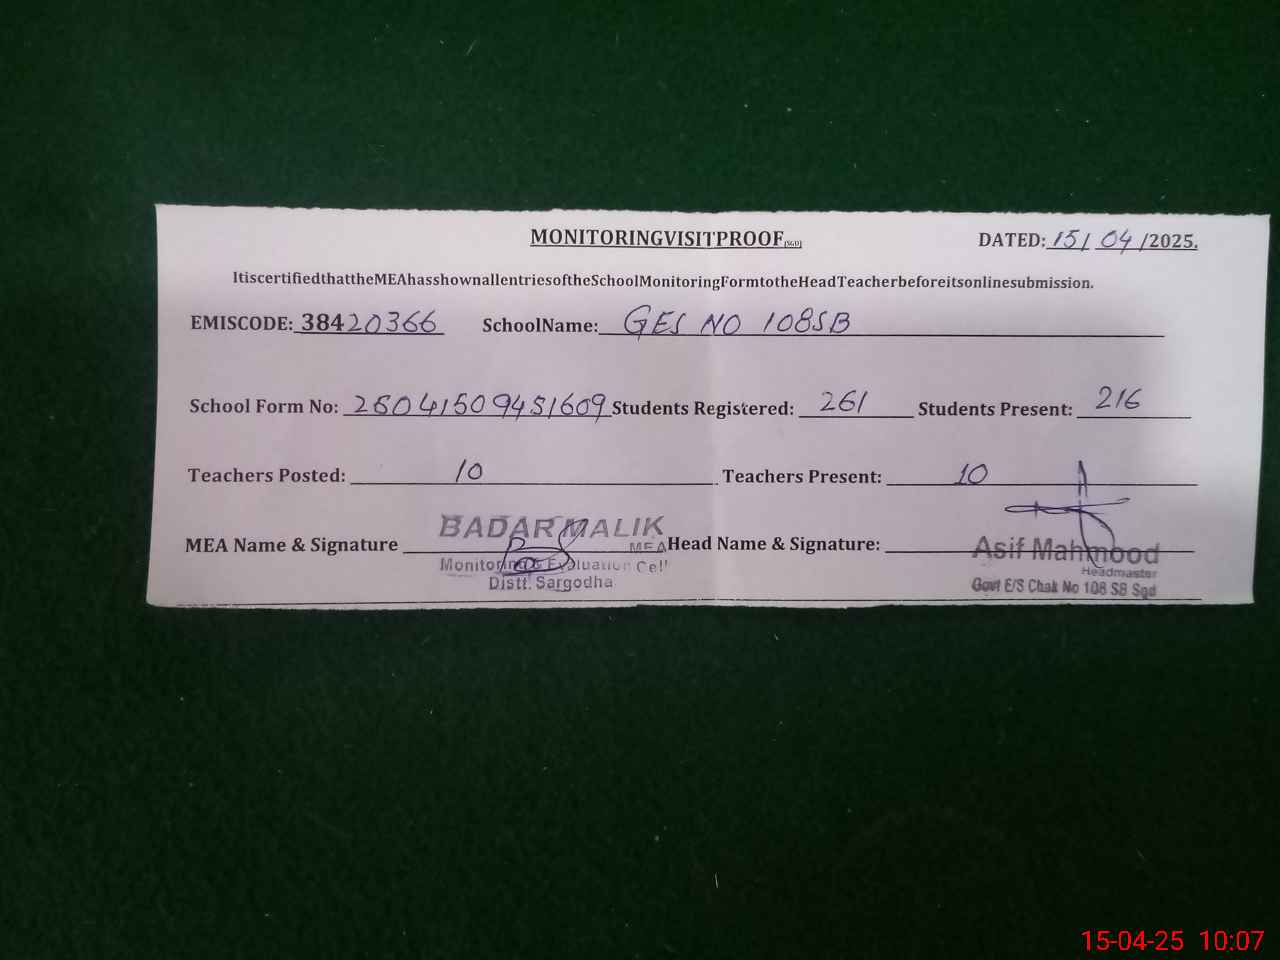 MONITORINGVISITPROOF(SGD) DATED: 15/ 04 /2025.
ItiscertifiedthattheMEAhasshownallentriesoftheSchoolMonitoringFormtotheHeadTeacherbeforeitsonlinesubmission.
EMISCODE: 38420366 SchoolName: GES NO 108SB
School Form No: 26041509451609 Students Registered: 261 Students Present: 216
Teachers Posted: 10 Teachers Present: 10
MEA Name & Signature BADAR MALIK Head Name & Signature: Asif Mahmood
MEA Headmaster
Monitoring & Evaluation Cell Govt E/S Chak No 108 SB Sgd
Distt. Sargodha
15-04-25 10:07